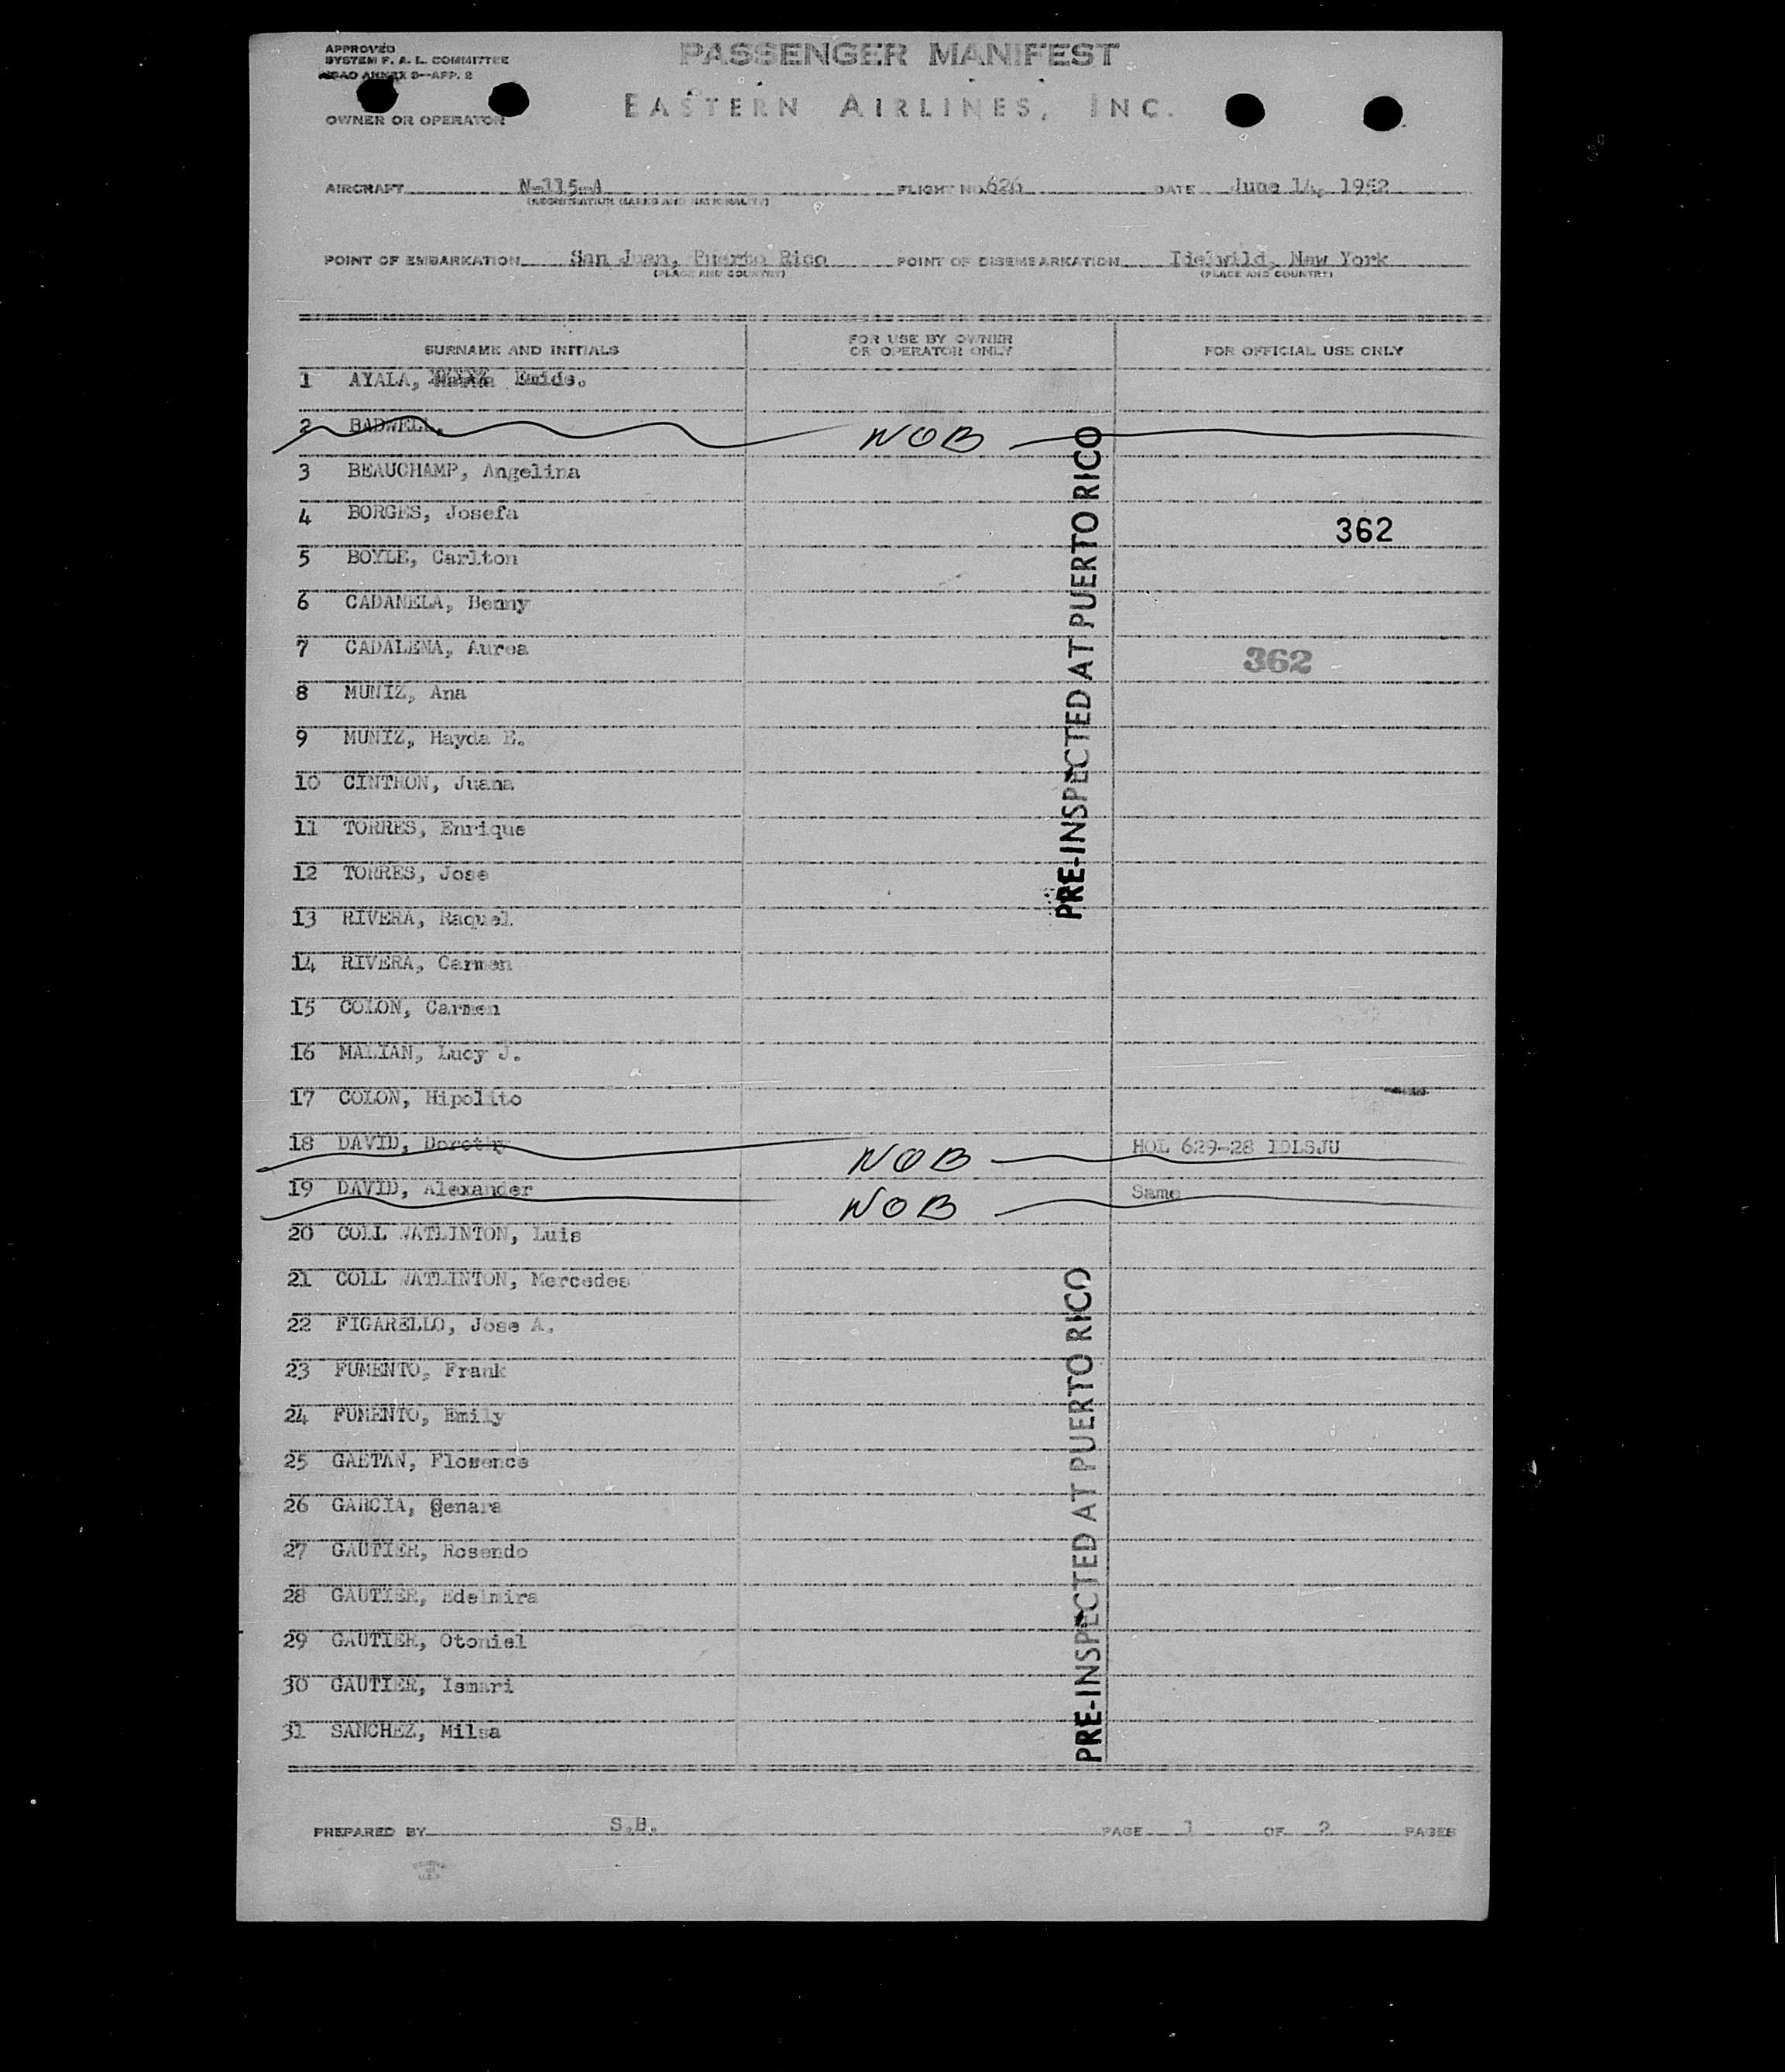 APPROVED
SYSTEM F. A. L. COMMITTEE
ICAO ANNEX 9—APP. 2
PASSENGER MANIFEST
EASTERN AIRLINES, INC.
OWNER OR OPERATOR
AIRCRAFT N-115-A FLIGHT NO. 626 DATE June 14, 1952
(REGISTRATION MARKS AND NATIONALITY)
POINT OF EMBARKATION San Juan, Puerto Rico POINT OF DISEMBARKATION Idelwild, New York
(PLACE AND COUNTRY) (PLACE AND COUNTRY)
SURNAME AND INITIALS FOR USE BY OWNER OR OPERATOR ONLY FOR OFFICIAL USE ONLY
1 AYALA, Emids.
2 BADWELL, NOB
3 BEAUCHAMP, Angelina
4 BORGES, Josefa 362
5 BOYLE, Carlton
6 CADANELA, Benny
7 CADALENA, Aurea 362
8 MUNIZ, Ana
9 MUNIZ, Hayda E.
10 CINTRON, Juana
11 TORRES, Enrique
12 TORRES, Jose
13 RIVERA, Raquel
14 RIVERA, Carmen
15 COLON, Carmen
16 MALIAN, Lucy J.
17 COLON, Hipolito
18 DAVID, Dorothy NOB HOL 629-28 IDLSJU
19 DAVID, Alexander NOB Same
20 COLL WATLINTON, Luis
21 COLL WATLINTON, Mercedes
22 FIGARELLO, Jose A.
23 FUMENTO, Frank
24 FUMENTO, Emily
25 GAETAN, Florence
26 GARCIA, Genara
27 GAUTIER, Rosendo
28 GAUTIER, Edelmira
29 GAUTIER, Otoniel
30 GAUTIER, Ismari
31 SANCHEZ, Milsa
PRE-INSPECTED AT PUERTO RICO
PRE-INSPECTED AT PUERTO RICO
PREPARED BY S.B. PAGE 1 OF 2 PAGES